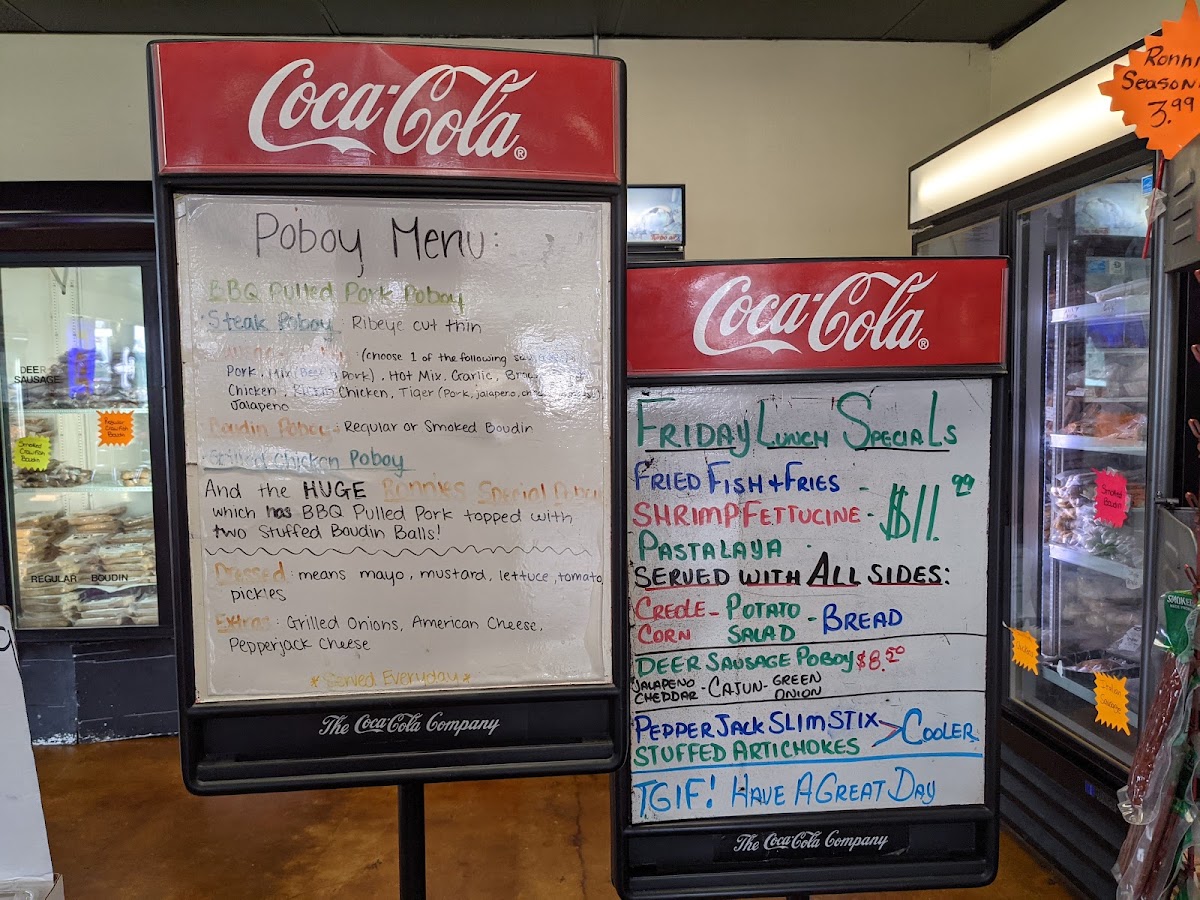 Coca-Cola®
Poboy Menu:
BBQ Pulled Pork Poboy
Steak Poboy Ribeye cut thin
(choose 1 of the following
Pork, Mix (Beef Pork), Hot Mix, Garlic,
Chicken, Chicken, Tiger (Pork, jalapeno,
Jalapeno
Boudin Poboy: Regular or Smoked Boudin
Grilled Chicken Poboy
And the HUGE Ronnies Special Poboy
which has BBQ Pulled Pork topped with
two Stuffed Boudin Balls!
Dressed: means mayo, mustard, lettuce, tomato,
pickles
Extras: Grilled Onions, American Cheese,
Pepperjack Cheese
*Served Everyday*
The Coca-Cola Company
Coca-Cola®
FRIDAY LUNCH SPECIALS
FRIED FISH + FRIES -
SHRIMP FETTUCINE - $11.99
PASTALAYA -
SERVED WITH ALL SIDES:
CREOLE - POTATO - BREAD
CORN SALAD
DEER SAUSAGE POBOY $8.50
JALAPENO CHEDDAR - CAJUN - GREEN ONION
PEPPER JACK SLIM STIX > COOLER
STUFFED ARTICHOKES
T.G.I.F! HAVE A GREAT DAY
The Coca-Cola Company
DEER
SAUSAGE
Regular
Crawfish
Boudin
Smoked
Crawfish
Boudin
REGULAR BOUDIN
Ronni
SEASON
3.99
Smoked
Boudin